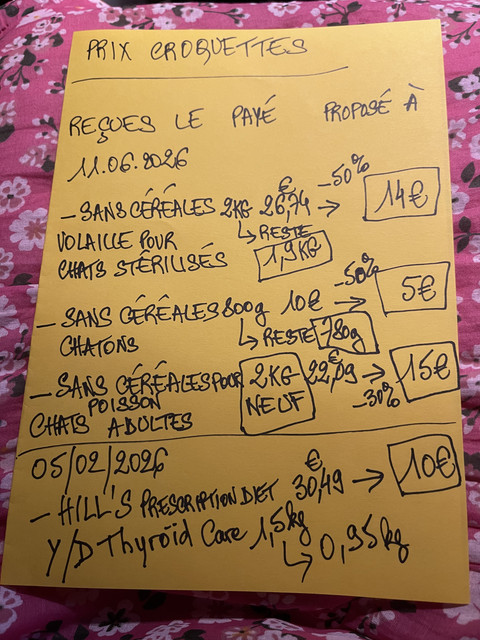 PRIX CROQUETTES
REÇUES LE PAYÉ PROPOSÉ À
11.06.2026
- SANS CÉRÉALES 2KG 26,74€ → -50% 14€
VOLAILLE POUR ↳ RESTE
CHATS STÉRILISÉS 1,9KG
- SANS CÉRÉALES 800g 10€ → -50% 5€
CHATONS ↳ RESTE 780g
- SANS CÉRÉALES POUR 2KG 22,09€ → 15€
POISSON NEUF -30%
CHATS ADULTES
05/02/2026
- HILL'S PRESCRIPTION DIET 30,49€ → 10€
Y/D Thyroïd Care 1,5kg
↳ 0,95kg